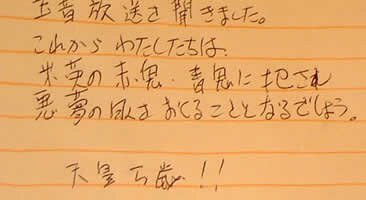 玉音放送を聞きました。
これからわたしたちは、
米英の赤鬼・青鬼に犯され
悪夢の日々をおくることとなるでしょう。
天皇万歳!!